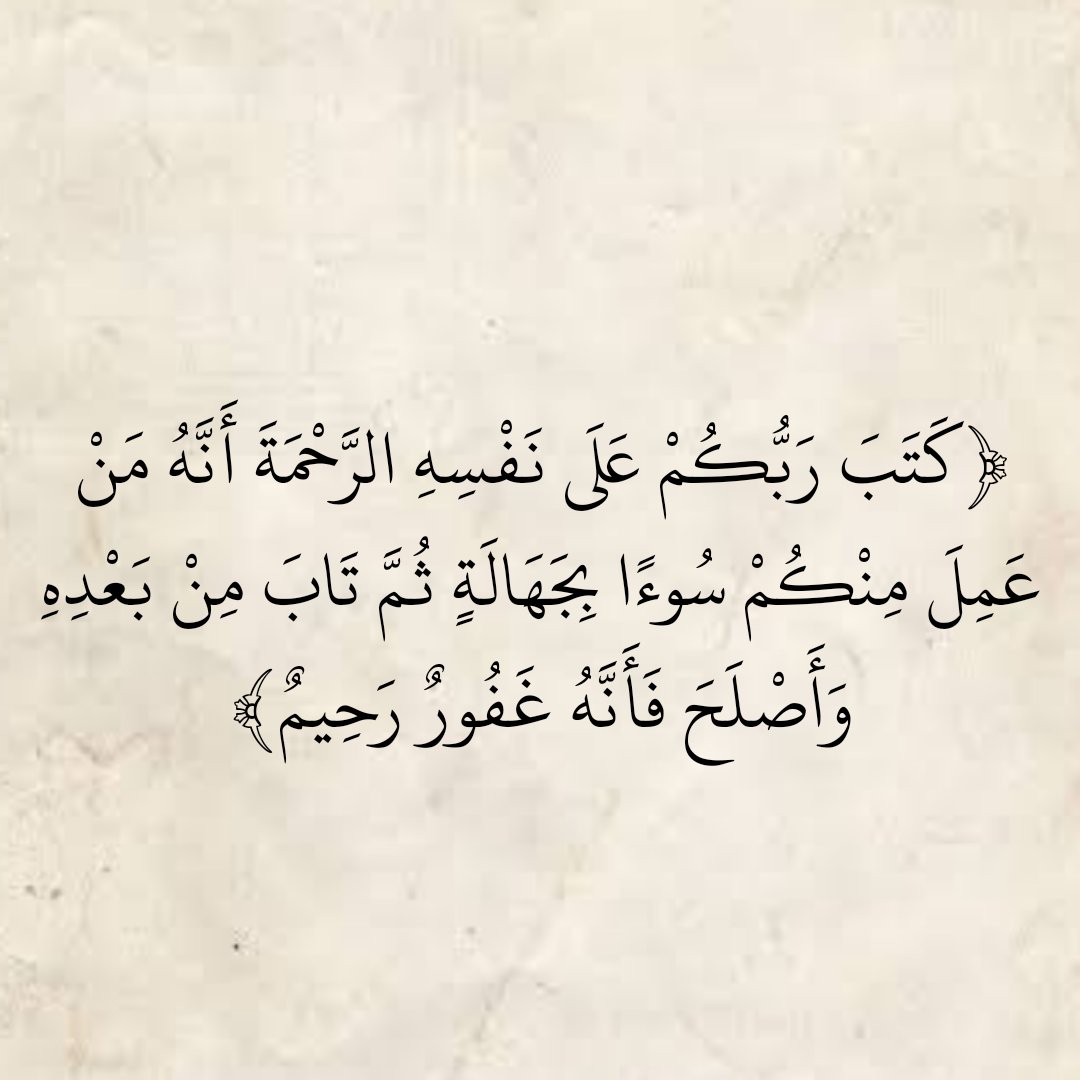 ﴿كَتَبَ رَبُّكُمْ عَلَى نَفْسِهِ الرَّحْمَةَ أَنَّهُ مَنْ
عَمِلَ مِنْكُمْ سُوءًا بِجَهَالَةٍ ثُمَّ تَابَ مِنْ بَعْدِهِ
وَأَصْلَحَ فَأَنَّهُ غَفُورٌ رَحِيمٌ﴾